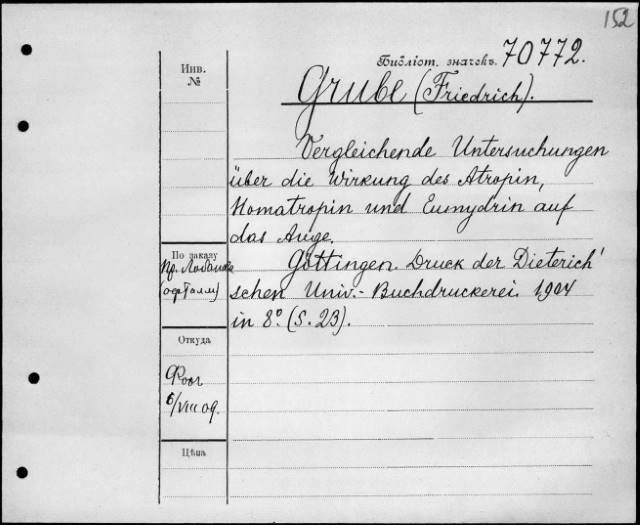 152
Библіот. значекъ. 70772.
Инв.
№
Grube (Friedrich).
Vergleichende Untersuchungen
über die Wirkung des Atropin,
Homatropin und Eumydrin auf
das Auge.
Göttingen. Druck der Dieterich'
schen Univ.- Buchdruckerei. 1904
in 8º. (S. 23).
По заказу
Пр.
(офталм)
Откуда
6/VIII 09.
Цѣна